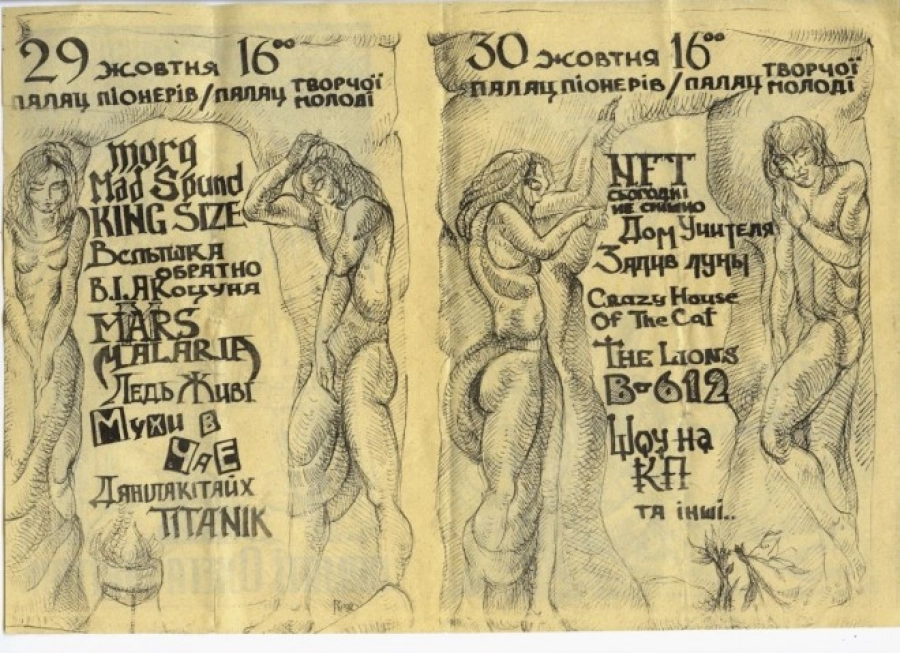 29 жовтня 16⁰⁰
палац піонерів/палац творчої молоді
morg
Mad Sound
KING SIZE
Вельтика
обратно
В.І.Ак оцуна
MARS
MALARIA
Ледь Живі
Мухи в
Чає
TITANIK
30 жовтня 16⁰⁰
палац піонерів/палац творчої молоді
NFT
сьогодні
не смішно
Дом Учителя
Залив луны
Crazy House
Of The Cat
The Lions
B-612
Шоу на
КП
та інші..